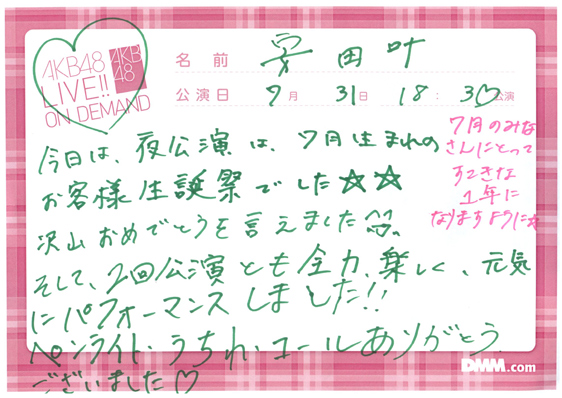 AKB48
LIVE!!
ON DEMAND
AKB
48
名前 安田叶
公演日 7月31日 18:30公演
今日は、夜公演は、7月生まれの
お客様生誕祭でした☆☆
沢山おめでとうを言えました
そして、2回公演とも全力、楽しく、元気
にパフォーマンスしました!!
ペンライト・うちわ・コールありがとう
ございました♡
7月のみな
さんにとって
すてきな
1年に
なりますように☆
DMM.com